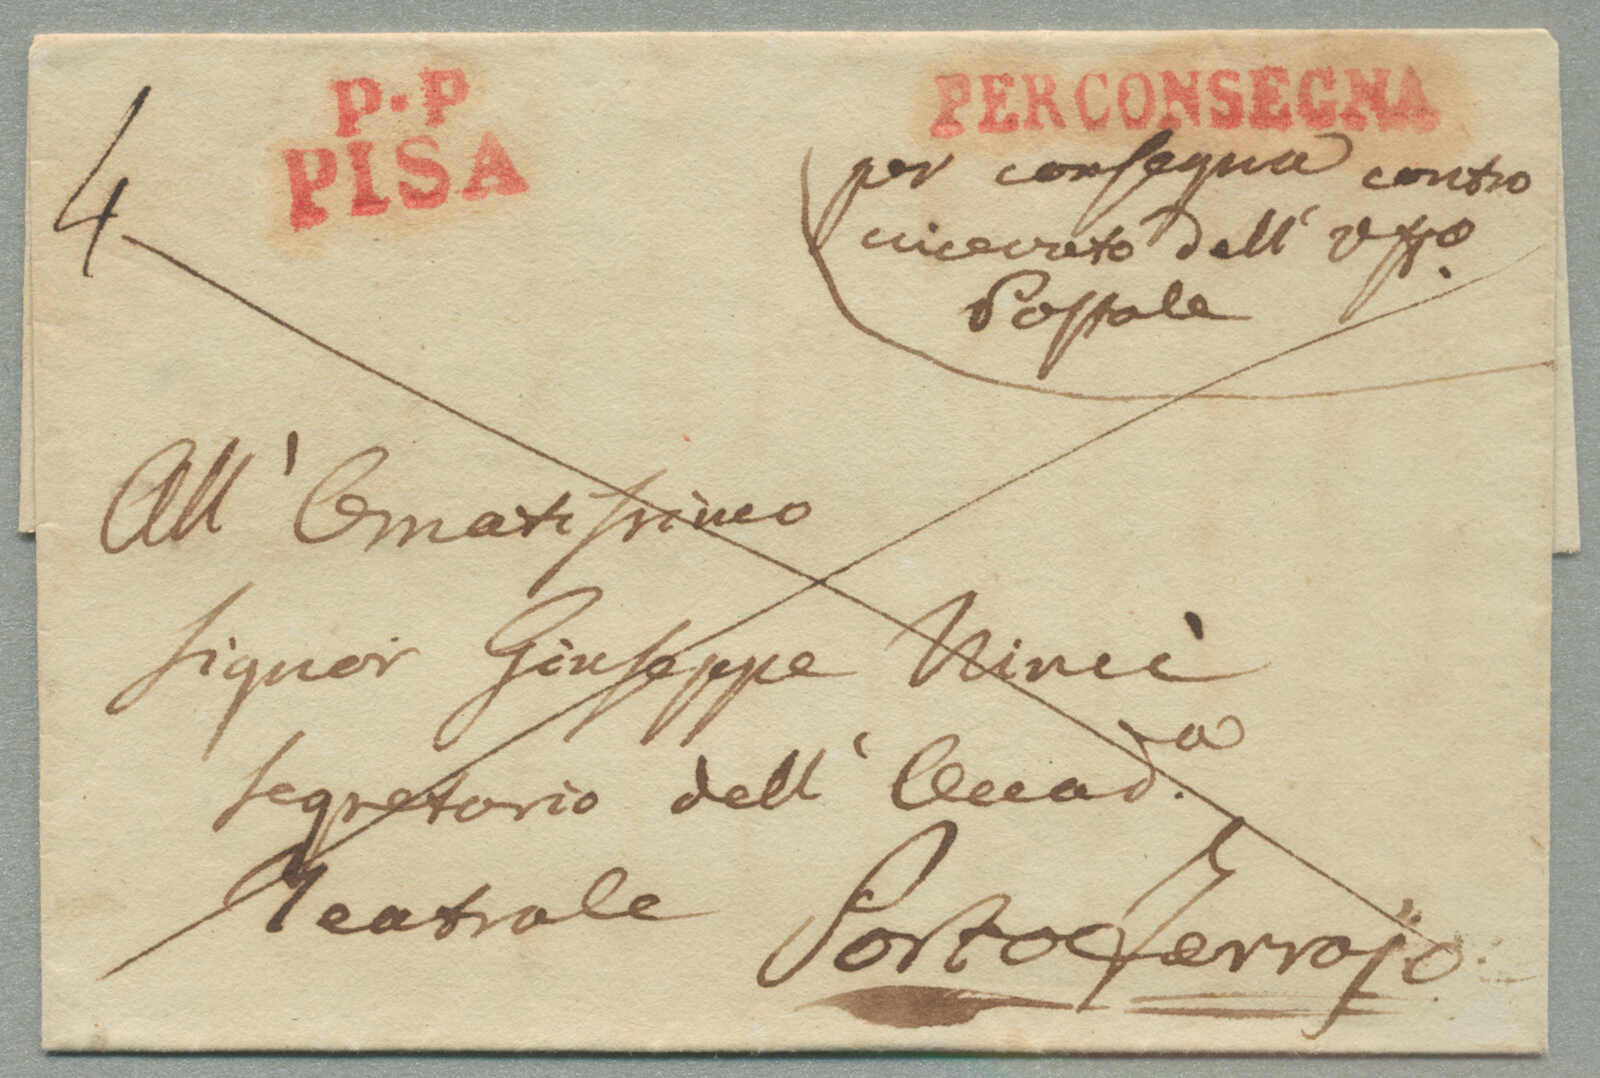 4
P.P
PISA
PER CONSEGNA
per consegna contro
ricevuto dell' Uffo.
Postale
All' Ornatissimo
Signor Giuseppe Ninci
Segretario dell' Accad.a
Teatrale Porto Ferrajo